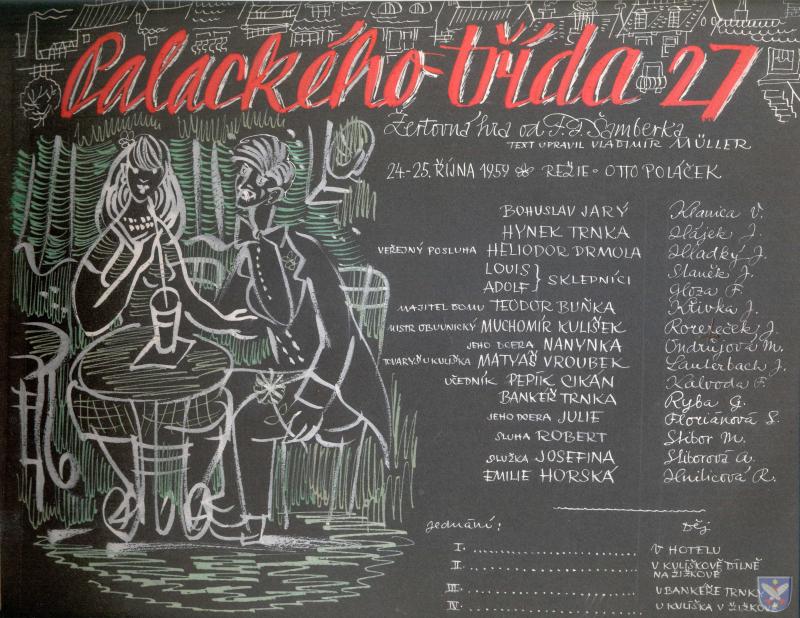 Palackého třída 27
Žertovná hra od F. F. Šamberka
TEXT UPRAVIL VLADIMÍR MÜLLER
24-25. ŘÍJNA 1959 REŽIE • OTTO POLÁČEK
BOHUSLAV JARÝ Klanica V.
HYNEK TRNKA Hájek J.
VEŘEJNÝ POSLUHA HELIODOR DRMOLA Hladký J.
LOUIS } SKLEPNÍCI Staněk J.
ADOLF Gloza F.
MAJITEL DOMU TEODOR BUŇKA Křivka J.
MISTR OBUVNICKÝ MUCHOMÍR KULIŠEK Rozeček J.
JEHO DCERA NANYNKA Ondrujová M.
TOVARYŠ U KULIŠKA MATYÁŠ VROUBEK Lauterbach J.
UČEDNÍK PEPÍK CIKÁN Kalvoda F.
BANKÉŘ TRNKA Ryba G.
JEHO DCERA JULIE Floriánová S.
SLUHA ROBERT Stibor M.
SLUŽKA JOSEFINA Stiborová A.
EMILIE HORSKÁ Hnilicová R.
Jednání: Děj
I. .......................... V HOTELU
II. .......................... V KULIŠKOVĚ DÍLNĚ
NA ŽIŽKOVĚ
III. .......................... U BANKÉŘE TRNKY
IV. .......................... U KULIŠKA V ŽIŽKOVĚ